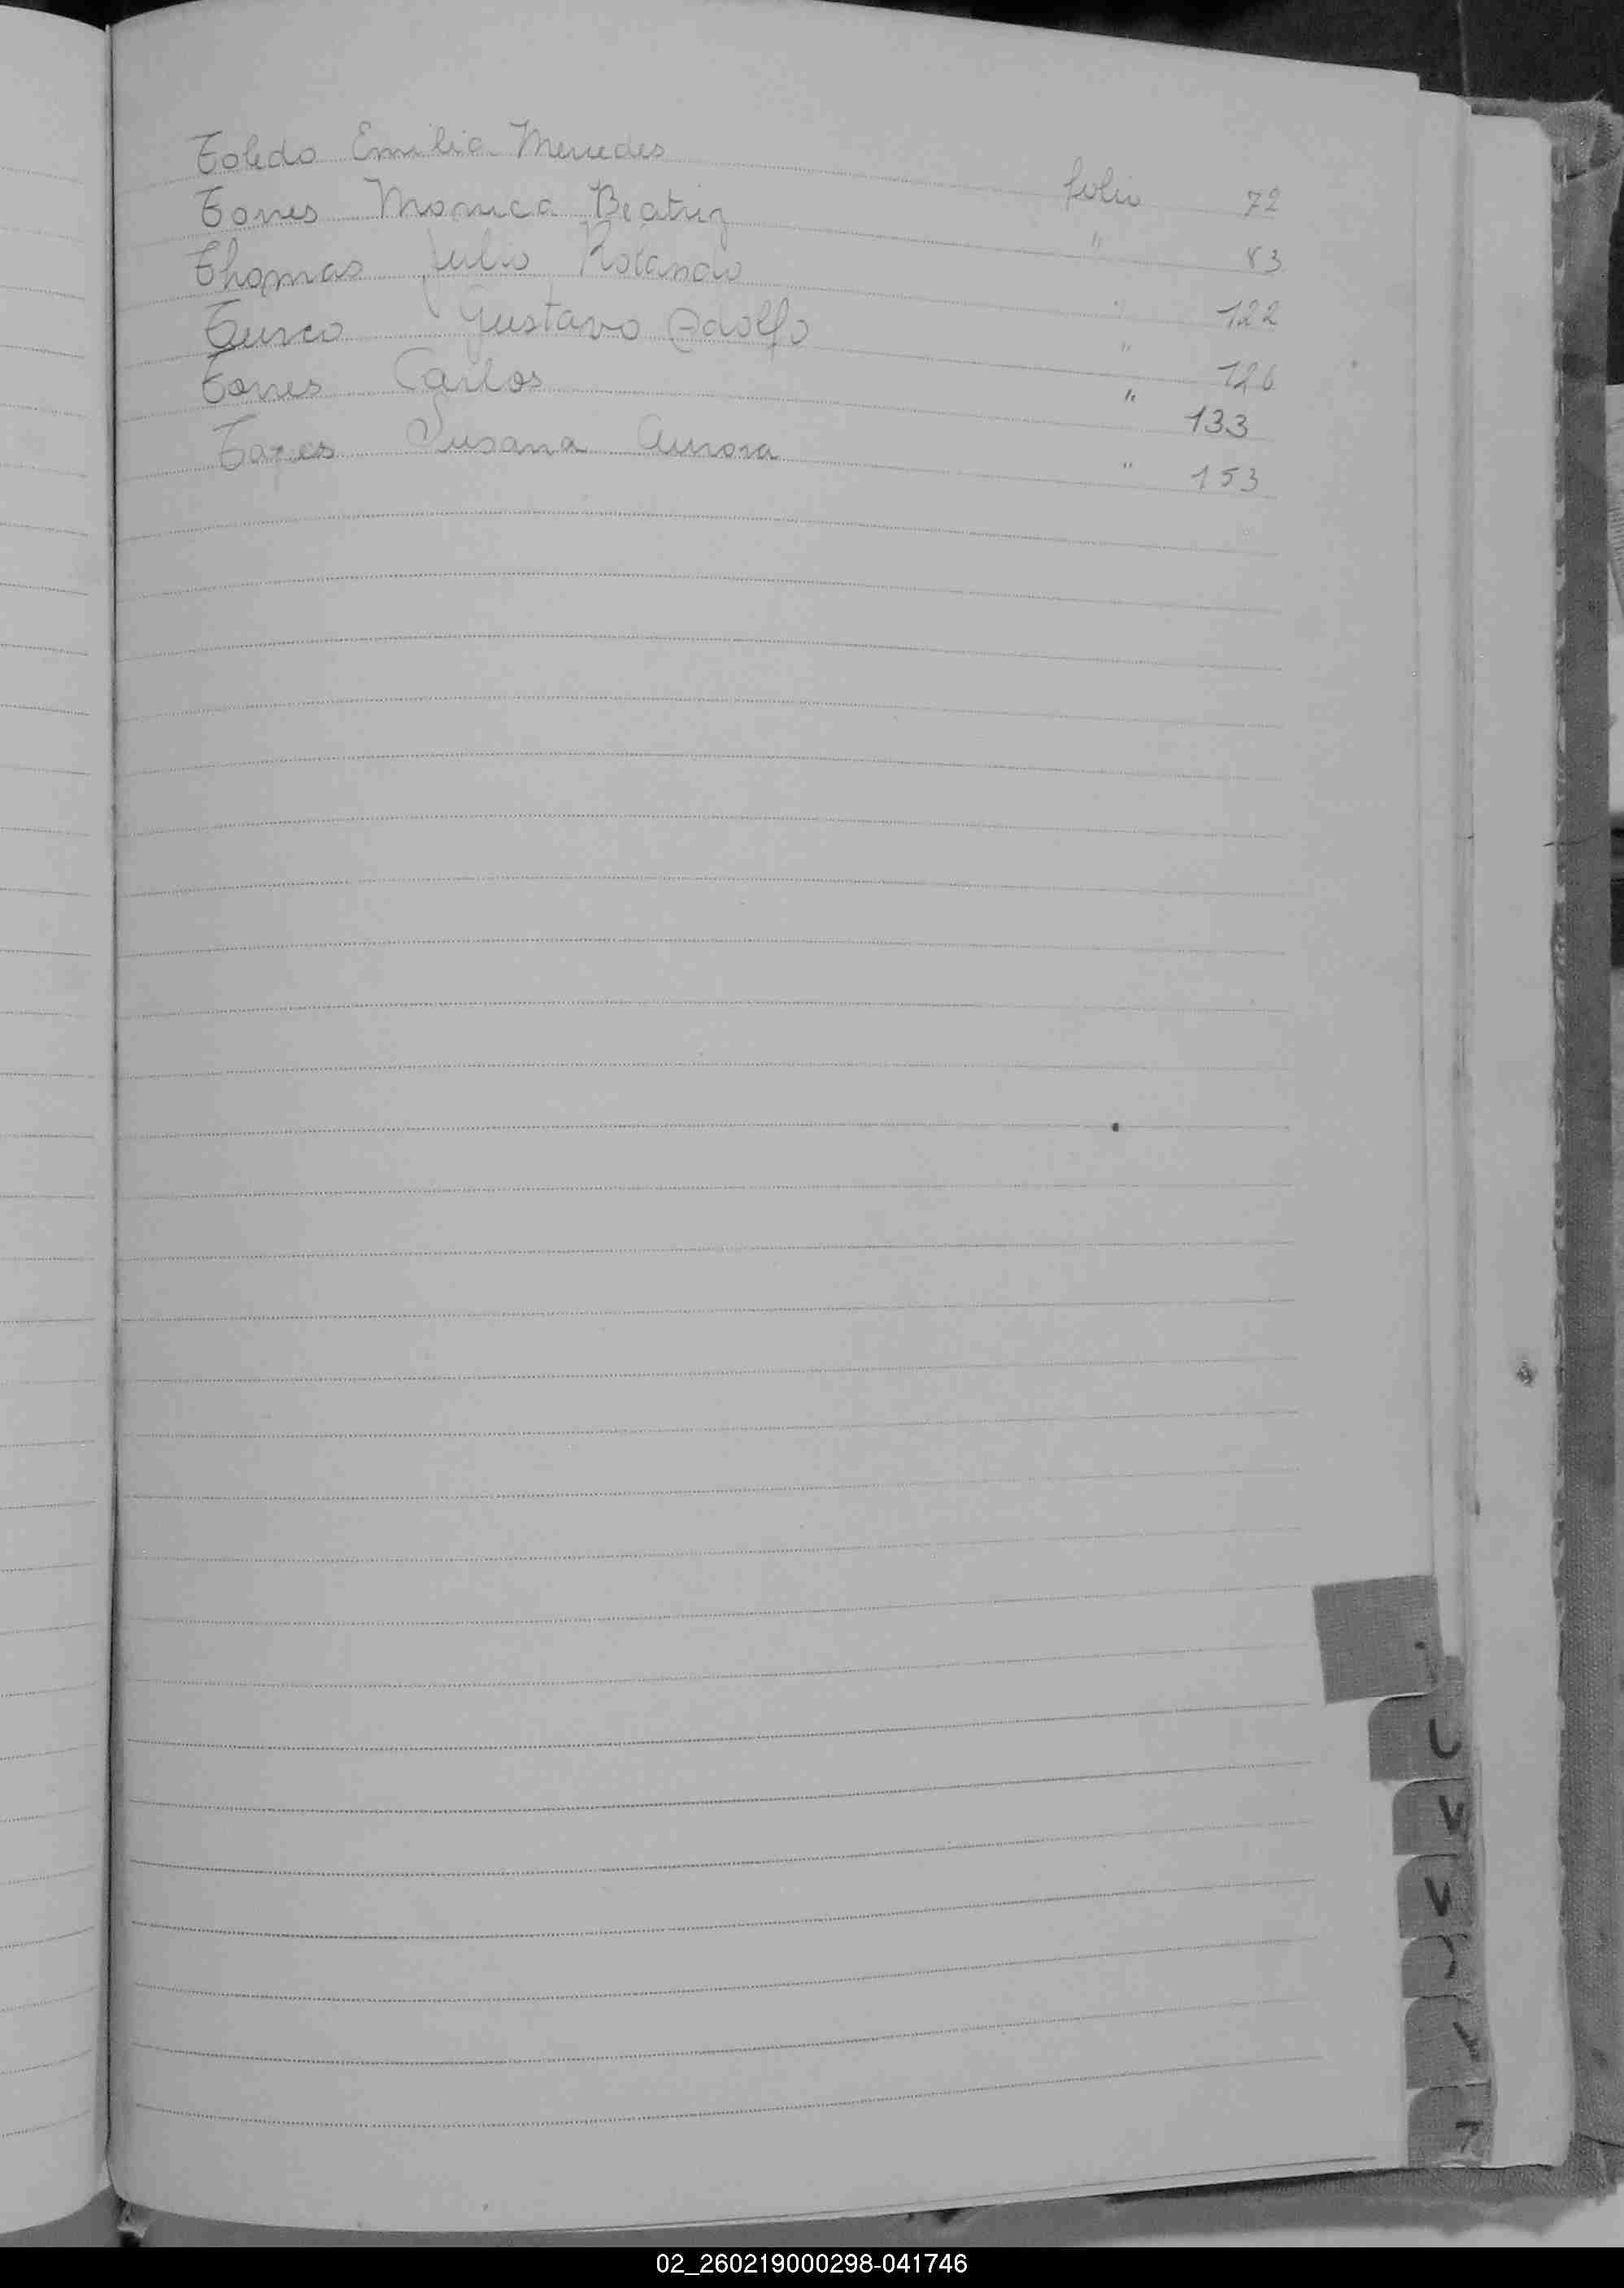 Toledo Emilia Mercedes folio 72
Torres Monica Beatriz " 83
Thomas Julio Rolando " 122
Turco Gustavo Adolfo " 126
Torres Carlos " 133
Susana Aurora " 153
U
V
7
02_260219000298-041746